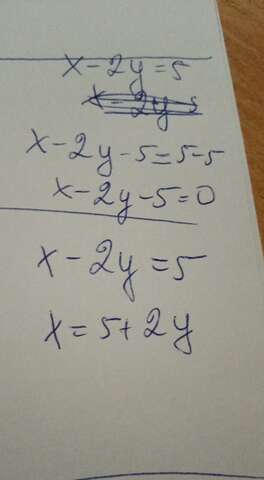 x-2y=5
x-2y-5=5-5
x-2y-5=0
x-2y=5
x=5+2y